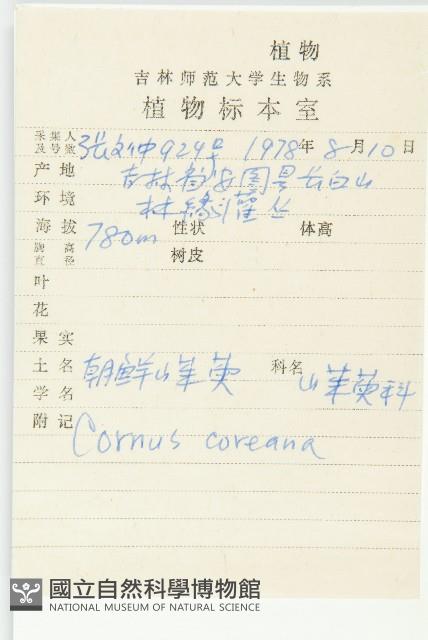 植物
吉林师范大学生物系
植物标本室
采集人及号数 张文仲 929号 1978年 8月10日
产地 吉林 图县长白山
环境 林缘 灌丛
海拔 780m 性状 体高
胸高直径 树皮
叶
花
果实
土名 朝鲜山茱萸 科名 山茱萸科
学名
附记 Cornus coreana
國立自然科學博物館
NATIONAL MUSEUM OF NATURAL SCIENCE